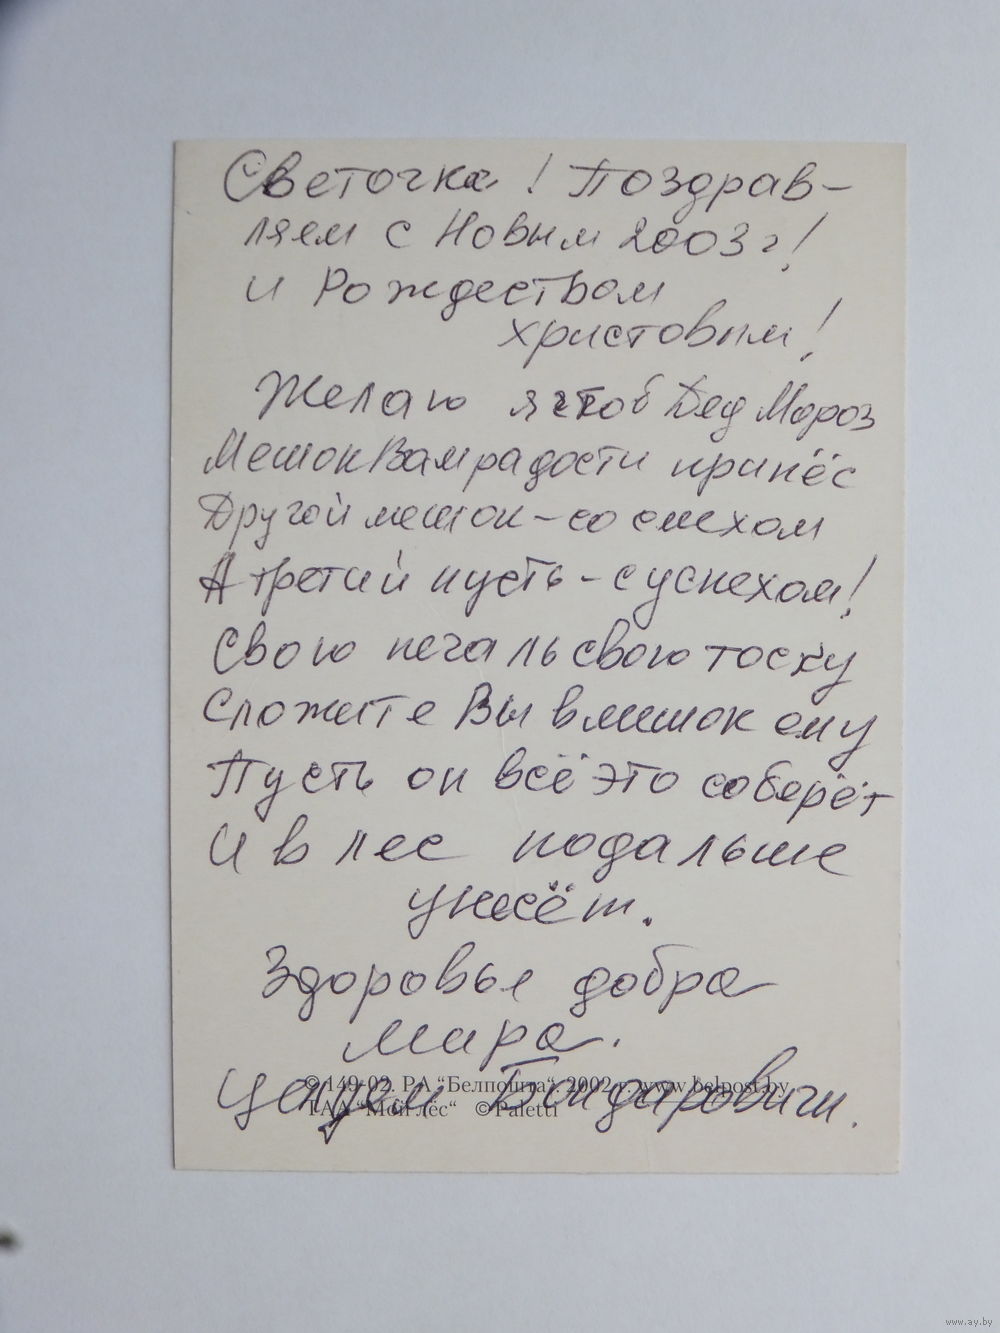 Светочка! Поздрав-
ляем с Новым 2003 г!
и Рождеством
христовым!
Желаю я чтоб Дед Мороз
Мешок Вам радости принёс
Другой мешок - со смехом
А третий пусть - с успехом!
Свою печаль свою тоску
Сложите Вы в мешок ему
Пусть он всё это соберёт
И в лес подальше
унесёт.
Здоровье добра
мира.
Целуем Бондаровичи.
© 149-02. РА "Белпошта". 2002 г. www.belpost.by
ТАА "Мой лёс" © Paletti
www.ay.by